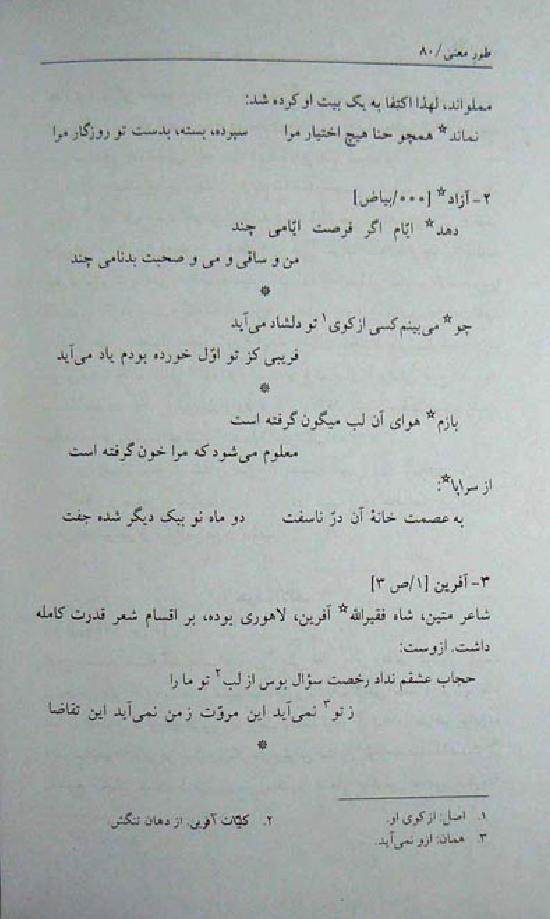 طور معنی / ۸۰
مملواند، لهذا اکتفا به یک بیت او کرده شد:
نماند* همچو حنا هیچ اختیار مرا سپرده، بسته، بدست تو روزگار مرا
۲- آزاد* [۰۰۰/بیاض]
دهد* ایّام اگر فرصت ایّامی چند
من و ساقی و می و صحبت بدنامی چند
*
چو* می‌بینم کسی از کوی۱ تو دلشاد می‌آید
فریبی کز تو اوّل خورده بودم یاد می‌آید
*
بازم* هوای آن لب میگون گرفته است
معلوم می‌شود که مرا خون گرفته است
از سراپا*:
به عصمت خانۀ آن درّ ناسفت دو ماه نو بیک دیگر شده جفت
۳- آفرین [۱/ص ۳]
شاعر متین، شاه فقیرالله* آفرین، لاهوری بوده، بر اقسام شعر قدرت کامله
داشت. ازوست:
حجاب عشقم نداد رخصت سؤال بوس از لب۲ تو ما را
ز تو۳ نمی‌آید این مروّت ز من نمی‌آید این تقاضا
*
۱. اصل: از کوی او. ۲. کلیّات آفرین. از دهان تنگش.
۳. همان: ازو نمی‌آید.